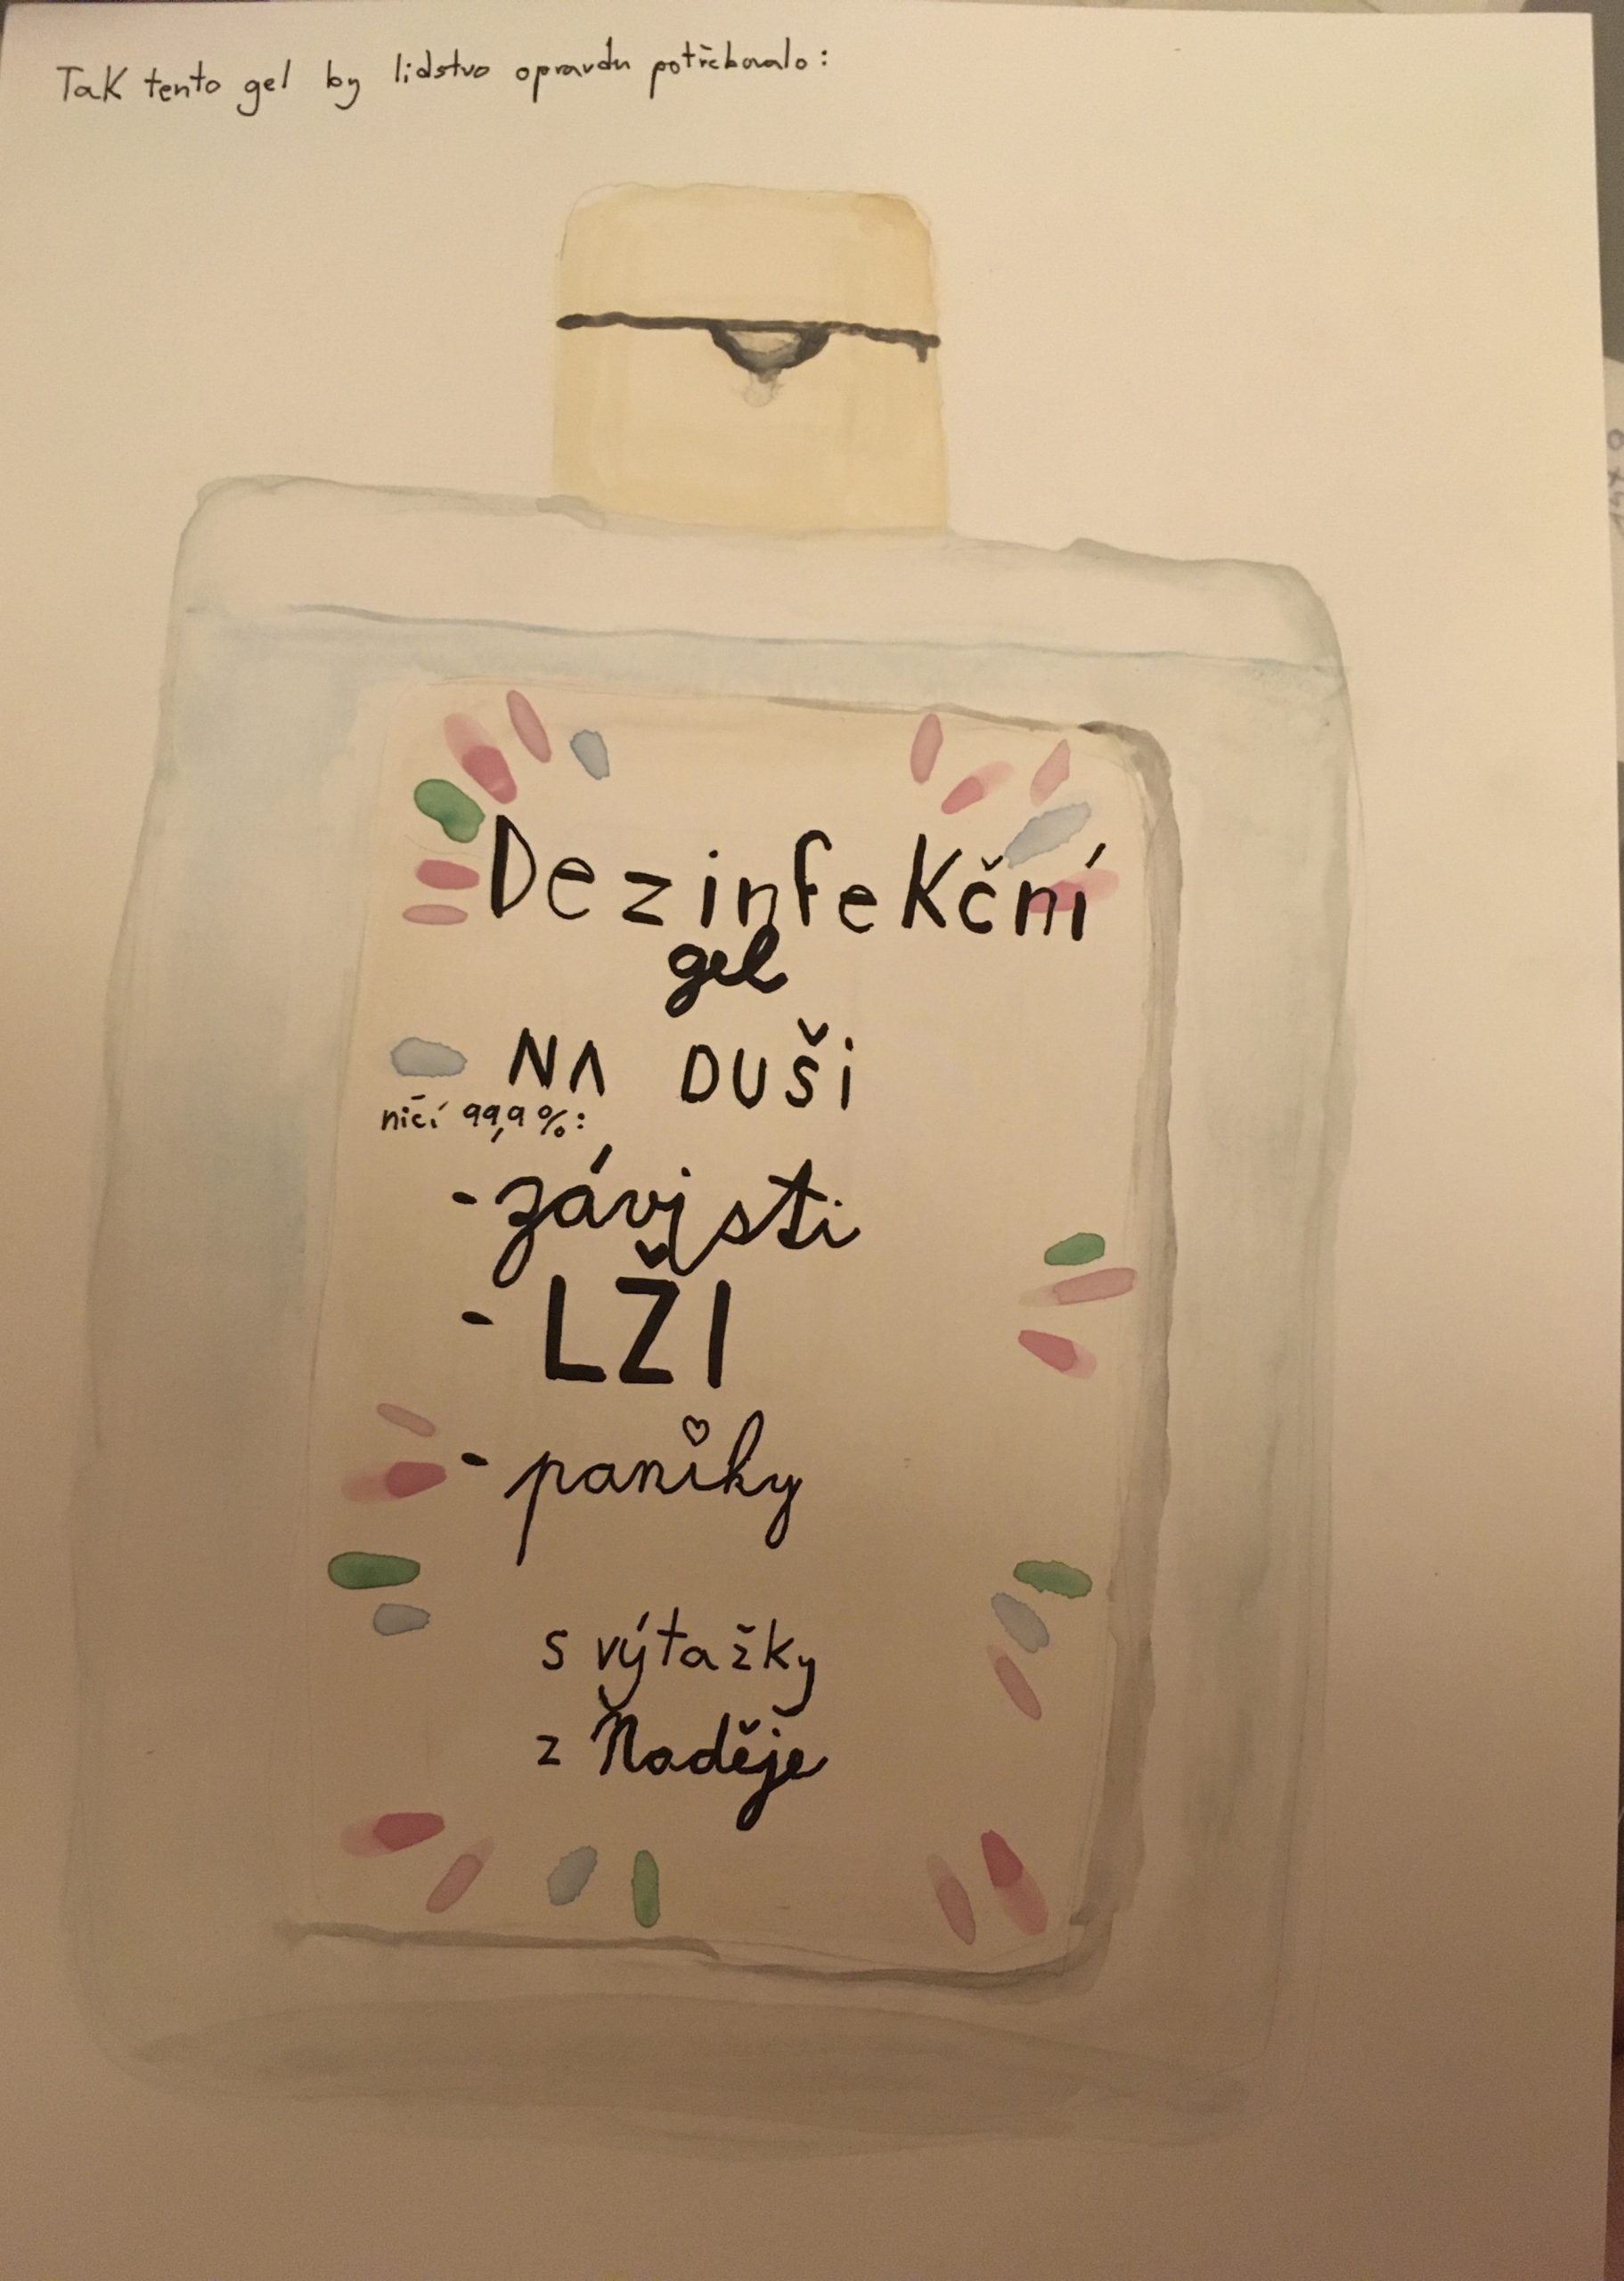 Tak tento gel by lidstvo opravdu potřebovalo:
Dezinfekční
gel
NA DUŠi
ničí 99,9%:
- závisti
- LŽI
- paniky
s výtažky
z Naděje